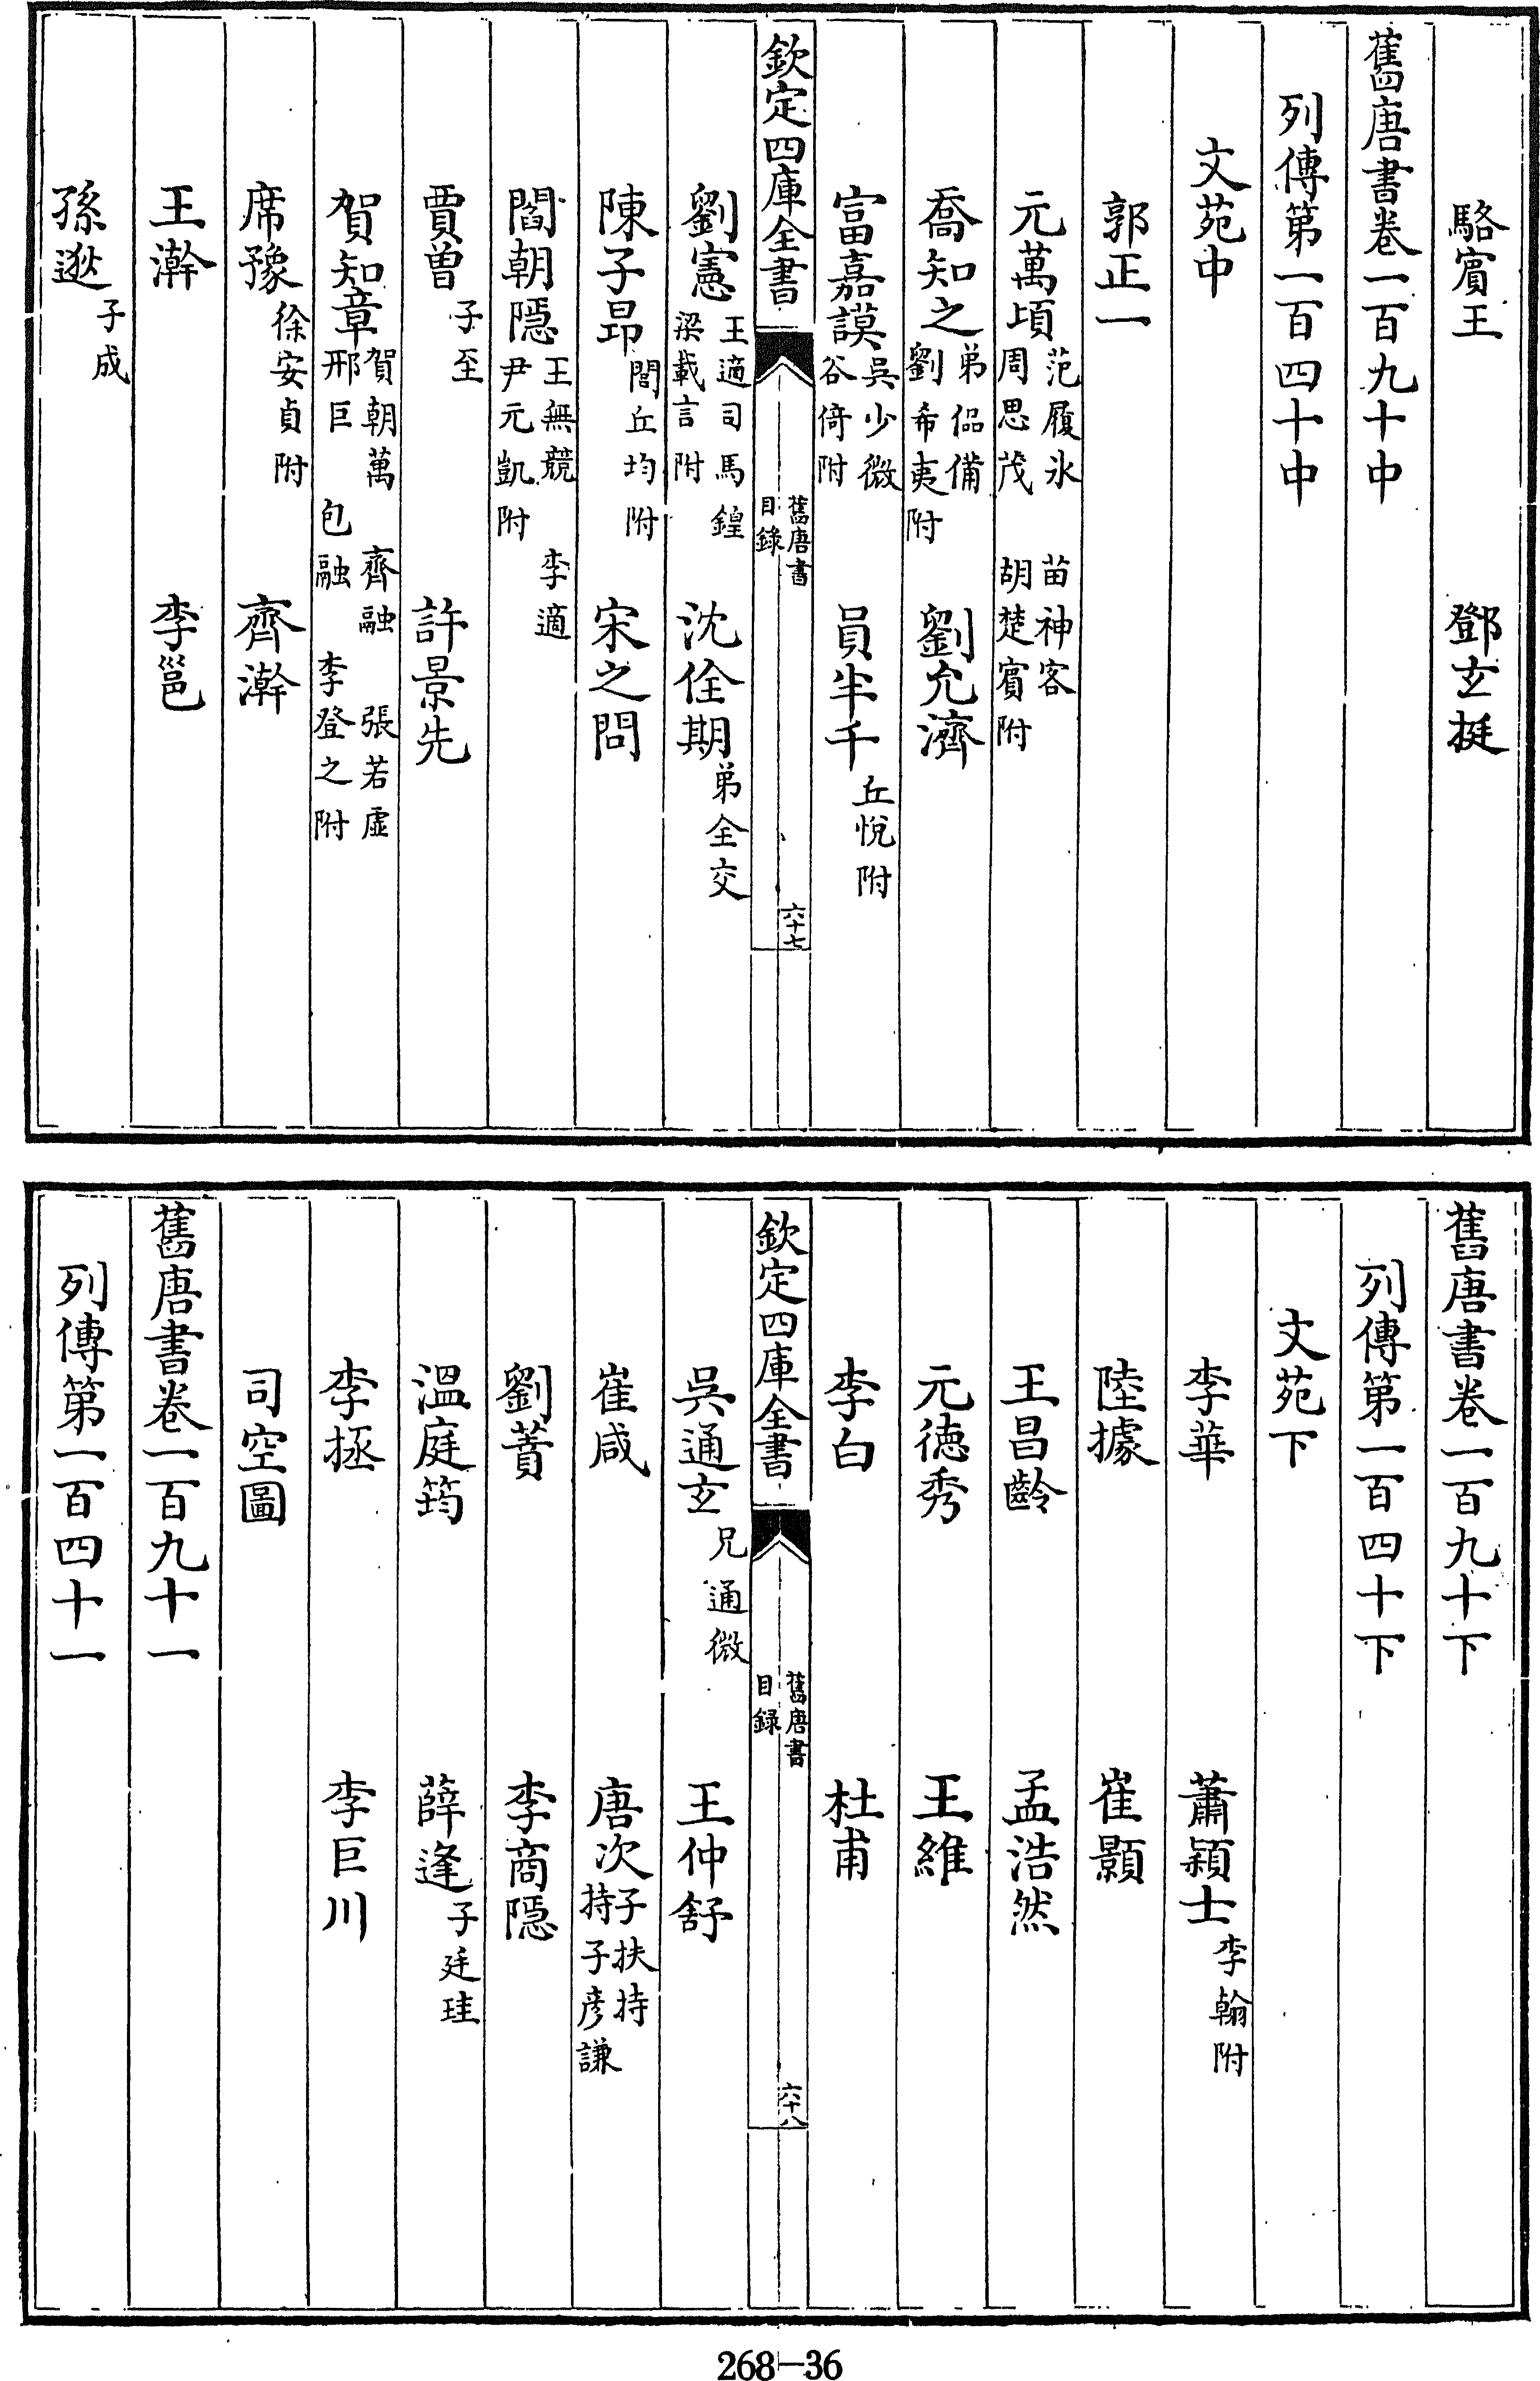 駱賓王　鄧玄挺
舊唐書卷一百九十中
列傳第一百四十中
文苑中
郭正一
元萬頃 范履氷 苗神客 周思茂 胡楚賓附
喬知之 弟侃備 劉希夷附　劉允濟
富嘉謨 吳少微 谷倚附　員半千 丘悅附
欽定四庫全書　舊唐書目錄　六十七
劉憲 王適司馬鍠 梁載言附　沈佺期 弟全交
陳子昻 閭丘均附　宋之問
閻朝隠 王無競 李適 尹元凱附
賈曾 子至　許景先
賀知章 賀朝萬 齊融 張若虛 邢巨 包融 李登之附
席豫 徐安貞附　齊澣
王澣　李邕
孫逖 子成
舊唐書卷一百九十下
列傳第一百四十下
文苑下
李華　蕭穎士 李翰附
陸據　崔顥
王昌齡　孟浩然
元德秀　王維
李白　杜甫
欽定四庫全書　舊唐書目録　六十八
吳通玄 兄通微　王仲舒
崔咸　唐次 子扶持 持子彦謙
劉蕡　李商隠
溫庭筠　薛逢 子廷珪
李拯　李巨川
司空圖
舊唐書卷一百九十一
列傳第一百四十一
268-36